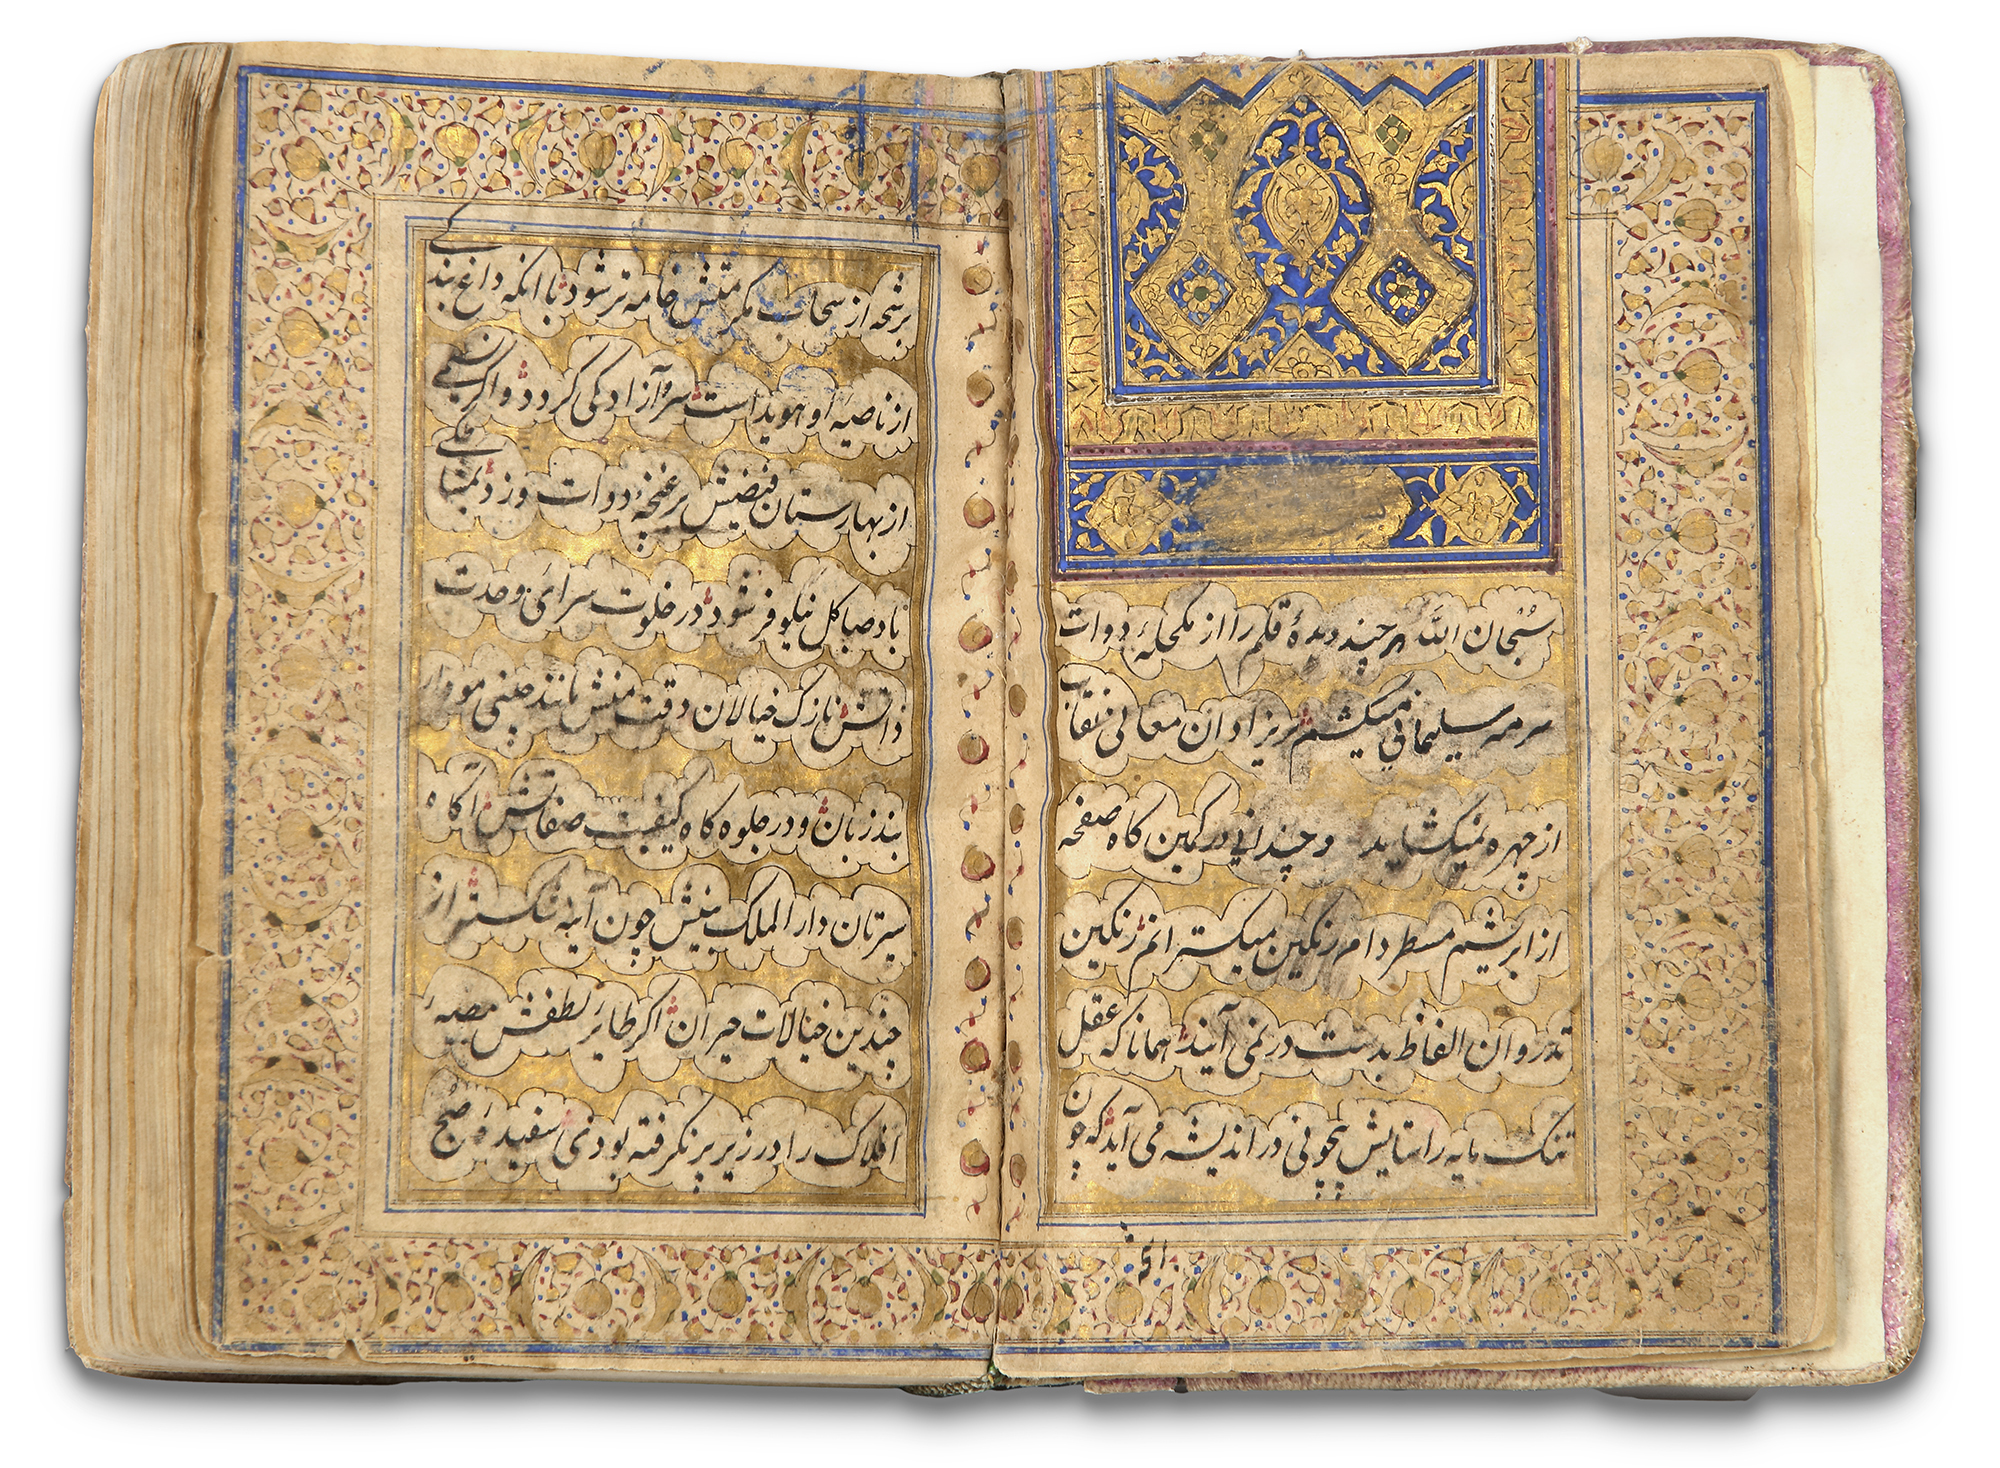 سُبحان اللّه هر چند دیدهٔ قلم را از مکحلهٔ دوات
سرمه سلیمانی میکشم پریزادان معانی نقاب
از چهره نمیکشاید و چندانی در کمین کاه صفحه
از ابریشم مسطر دام رنکین میکسترانم رنکین
تدروان الفاظ بدست در نمی آیند همانا که عقل
تنک مایه را ستایش بیچونی در اندیشه می آید که چون
رشحه از سحاب مکرمتش خامه تر شود با انکه داغ بندکی
از ناصیه او هویداست سر آزادکی کردد و اکر نسیمی
از بهارستان فیضش بر غنچهٔ دوات وزد بمنا
باد صبا کل نیلوفر شود در خلوت سرای وحدت
ذاتش نازک خیالان دقت منش مانند چینی مودار
بند زبان و در جلوه کاه کیفیت صفاتش آکاه
سیرتان دار الملک بینش چون آینه شکسته از
چندین خیالات حیران اکر طایر لطفش بیضهٔ
افلاک را در زیر پر نکرفته بودی سفیدهٔ صبح